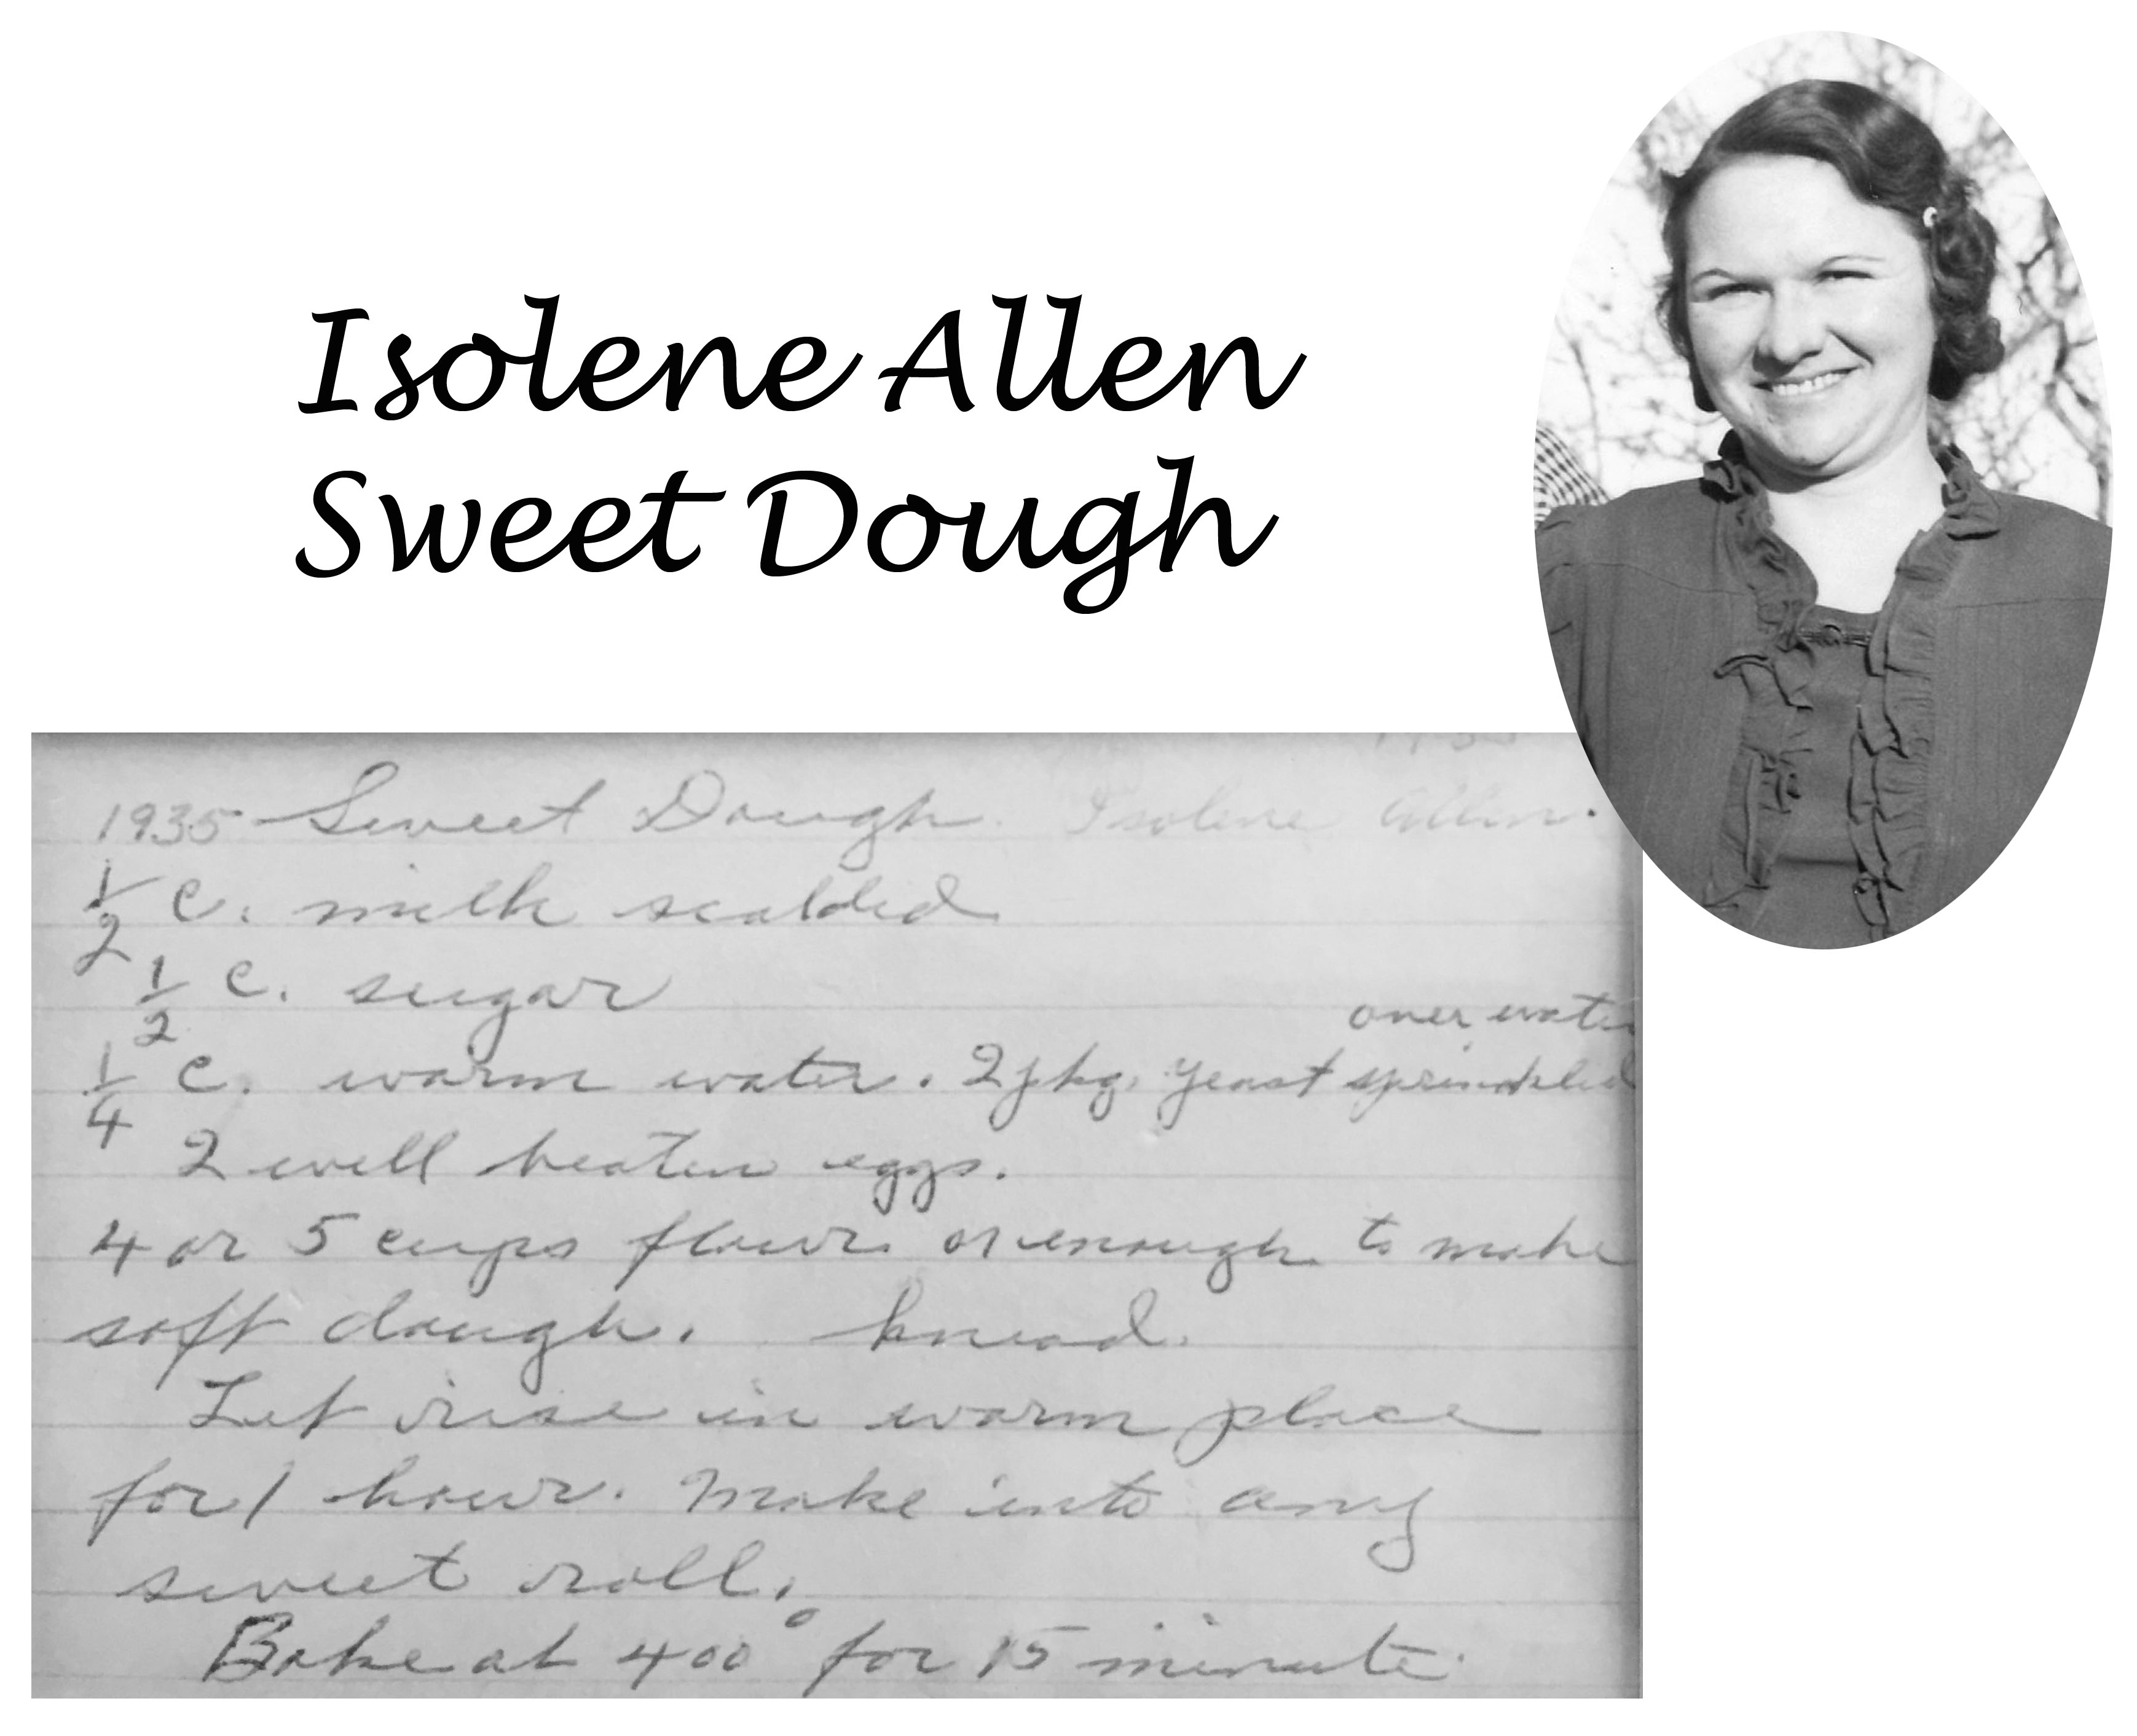 Isolene Allen
Sweet Dough
1935 Sweet Dough. Isolene Allen.
1/2 c. milk scalded
1/2 c. sugar
over water
1/4 c. warm water. 2 pkg. yeast sprinkled
2 well beaten eggs.
4 or 5 cups flour or enough to make
soft dough. knead.
Let rise in warm place
for 1 hour. Make into any
sweet roll.
Bake at 400° for 15 minute.